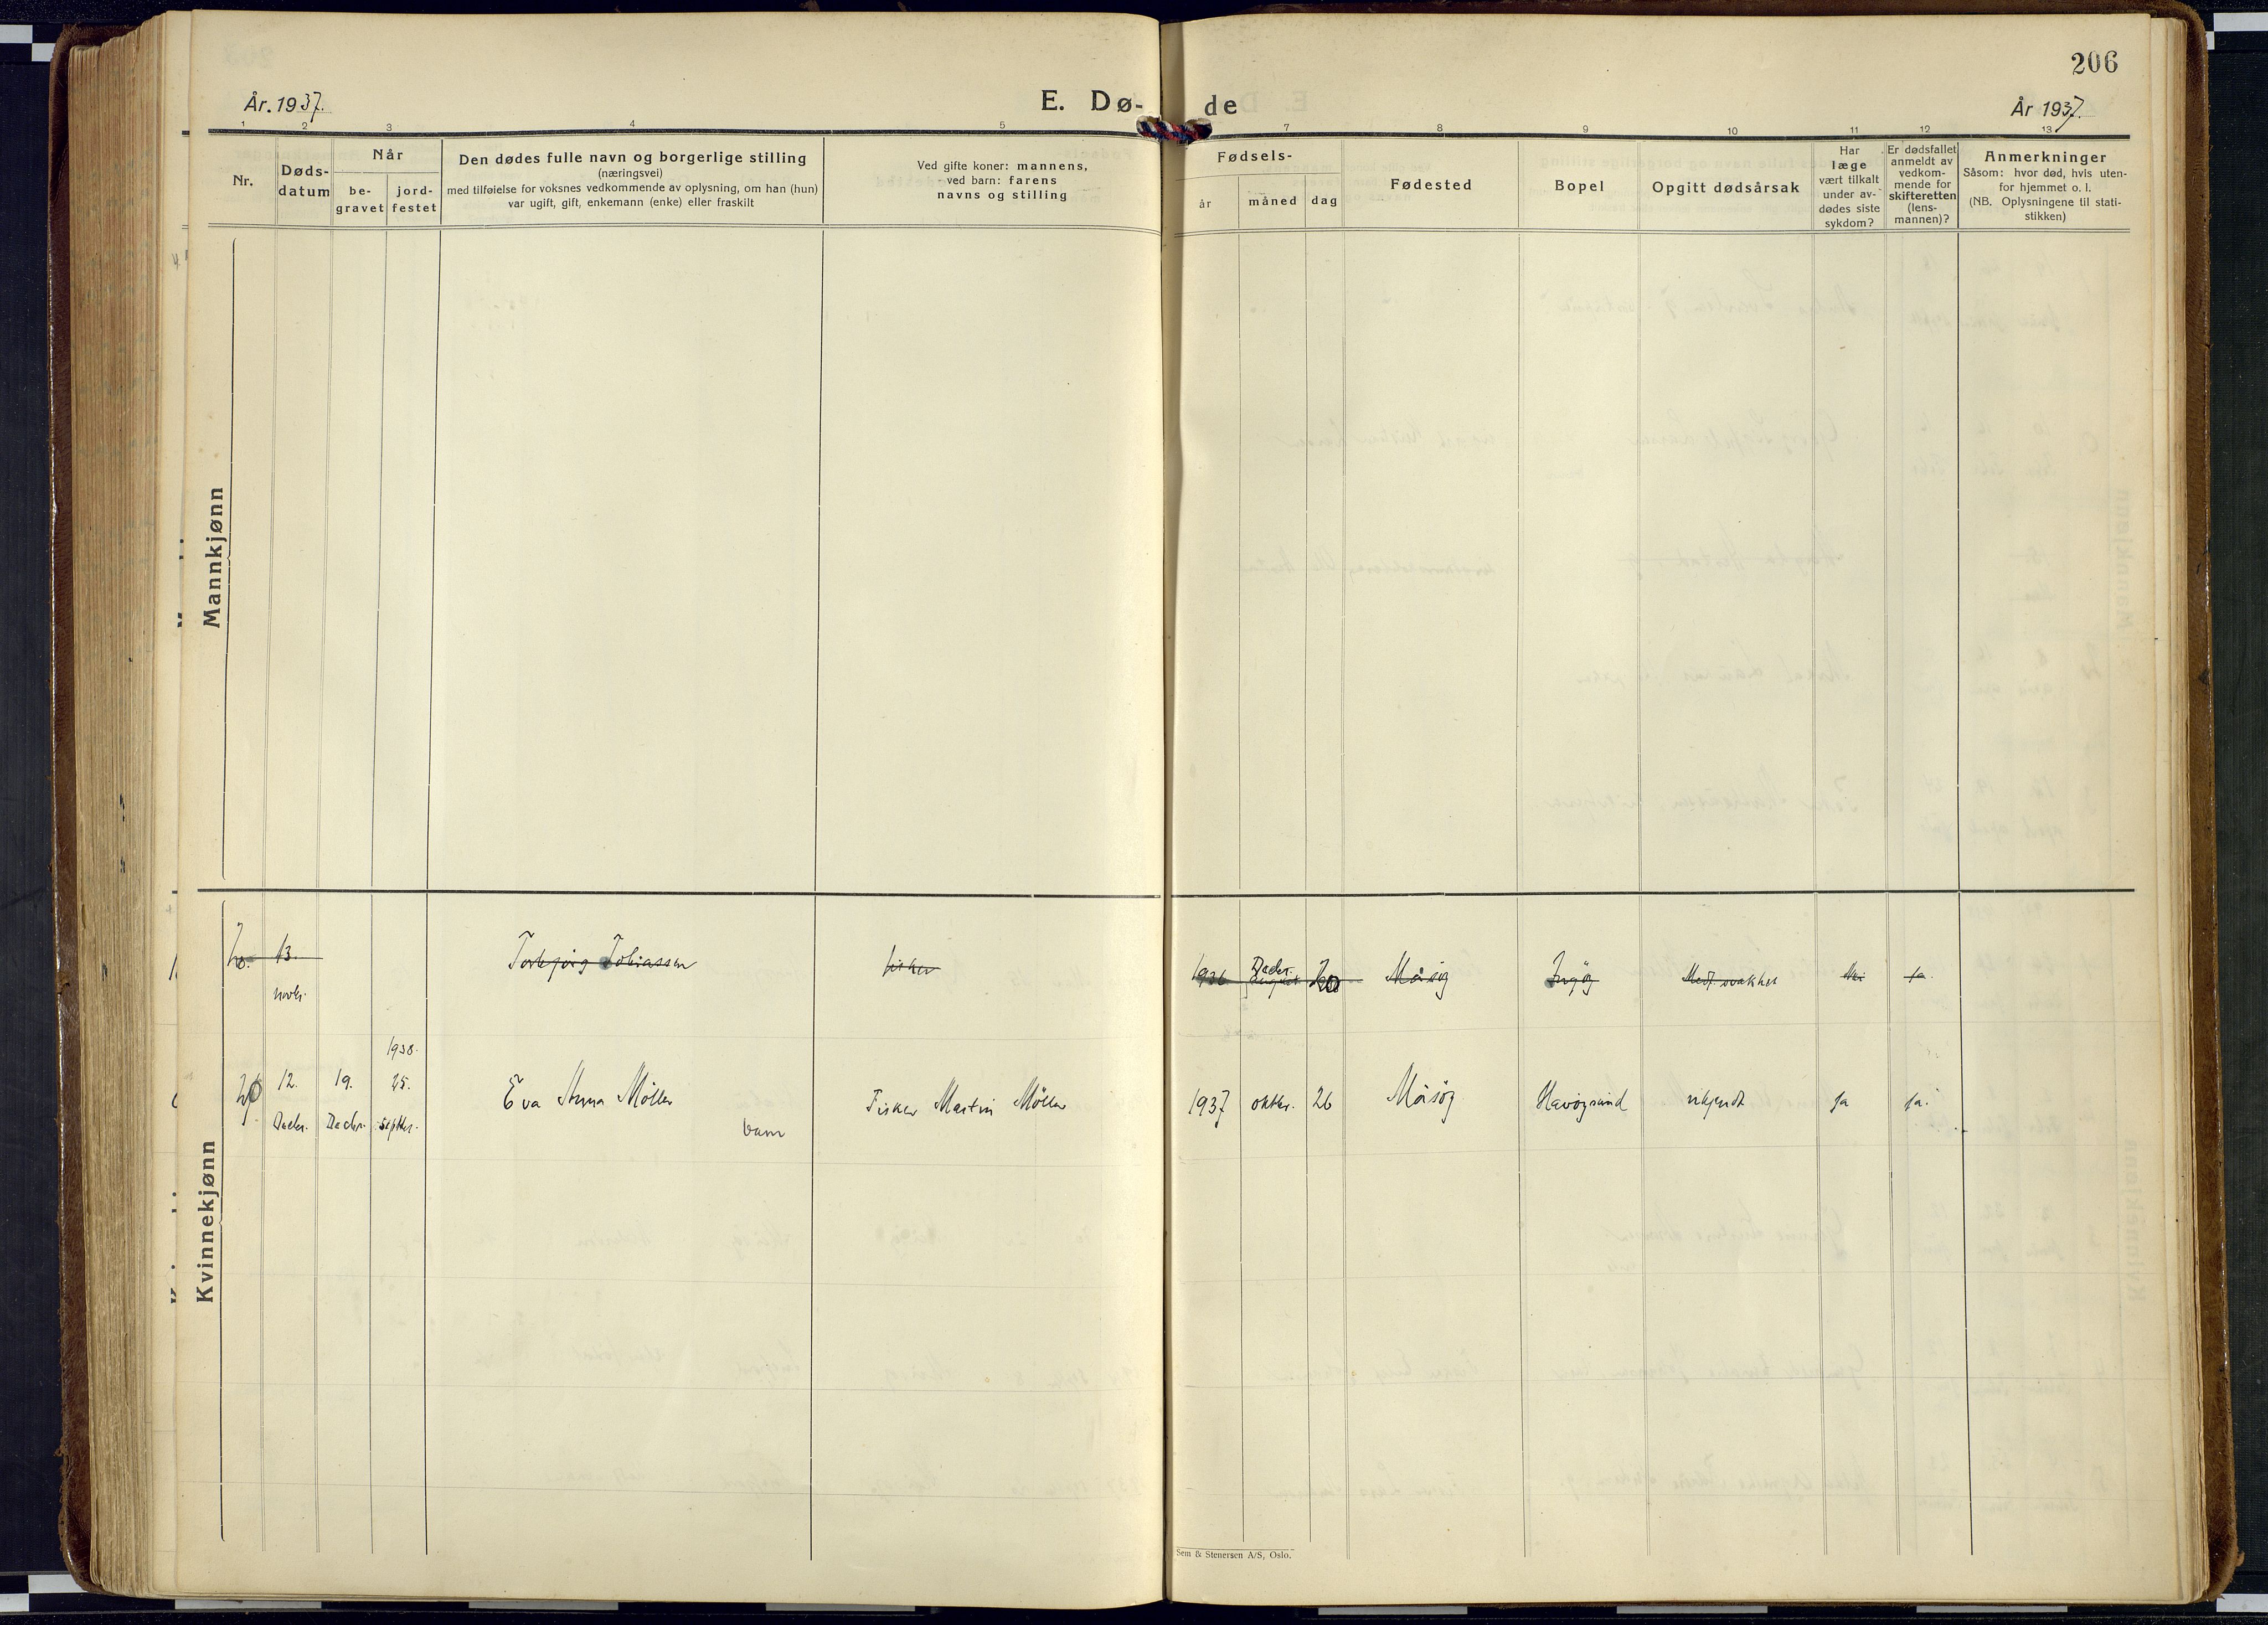 206
År. 1937.
E. Dø-
de
År 1937.
1 2 3 4 5 7 8 9 10 11 12 13
Nr.
Døds-
datum
Når
be-
gravet
jord-
festet
Den dødes fulle navn og borgerlige stilling
(næringsvei)
med tilføielse for voksnes vedkommende av oplysning, om han (hun)
var ugift, gift, enkemann (enke) eller fraskilt
Ved gifte koner: mannens,
ved barn: farens
navns og stilling
Fødsels-
år
måned
dag
Fødested
Bopel
Opgitt dødsårsak
Har
læge
vært tilkalt
under av-
dødes siste
sykdom?
Er dødsfallet
anmeldt av
vedkom-
mende for
skifteretten
(lens-
mannen)?
Anmerkninger
Såsom: hvor død, hvis uten-
for hjemmet o. l.
(NB. Oplysningene til stati-
stikken)
Mannkjønn
Kvinnekjønn
13. Torbjörg Tobiassen fisker 1936 Decbr. 20 Måsöy Ingöy Medf. svakhet Nei Ja.
novbr.
1938.
12. 19. 25. Eva Anna Möller Fisker Martin Möller 1937 oktbr. 26 Måsöy Havöysund ukjendt Ja Ja.
Decbr. Decbr. septbr. barn
Sem & Stenersen A/S, Oslo.